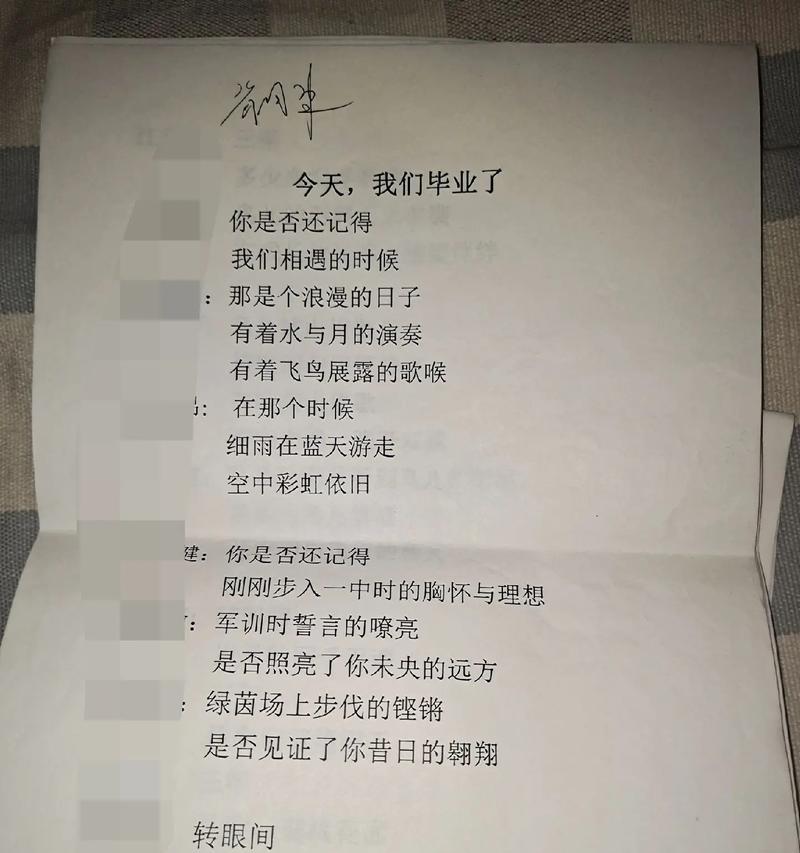 今天，我们毕业了
你是否还记得
我们相遇的时候
：那是个浪漫的日子
有着水与月的演奏
有着飞鸟展露的歌喉
：在那个时候
细雨在蓝天游走
空中彩虹依旧
健：你是否还记得
刚刚步入一中时的胸怀与理想
：军训时誓言的嘹亮
是否照亮了你未央的远方
：绿茵场上步伐的铿锵
是否见证了你昔日的翱翔
转眼间